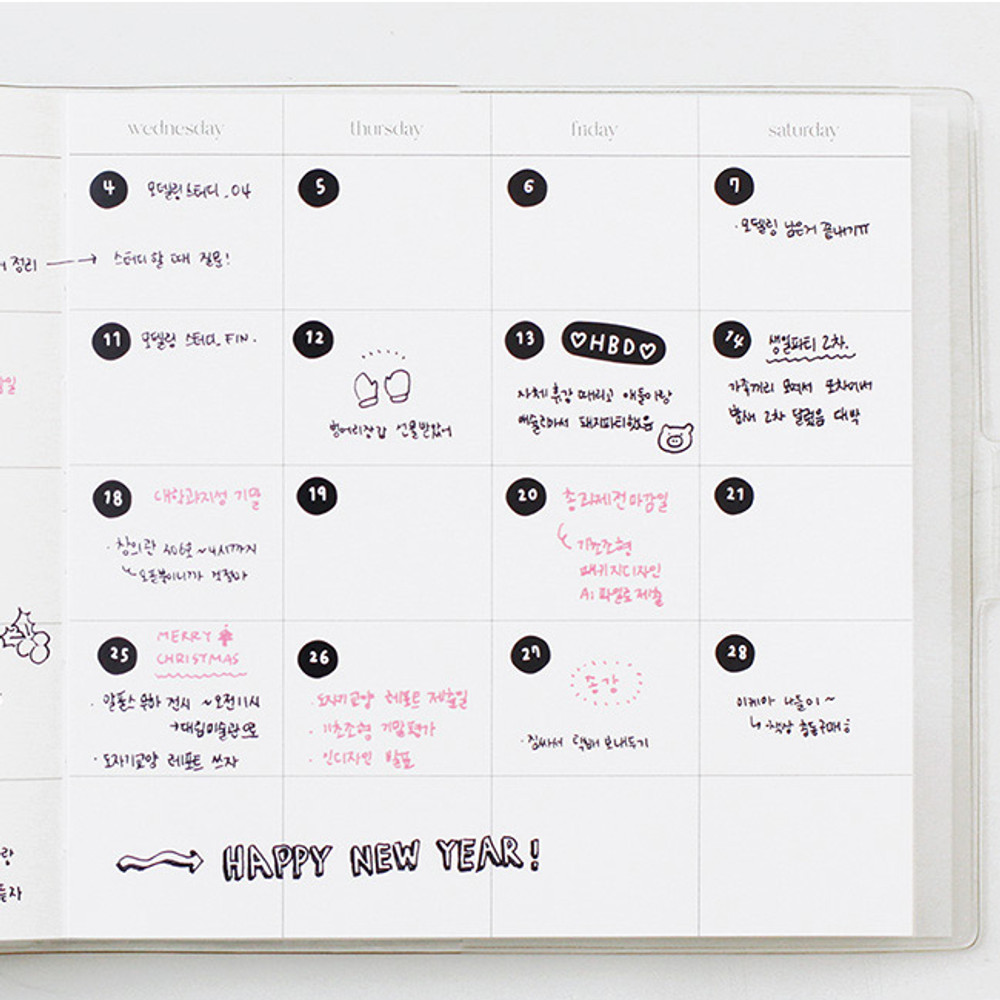 wednesday
thursday
friday
saturday
4 모델링 스터디_04
5
6
7
정리
스터디 할 때 질문!
·모델링 남은거 끝내기ㅠ
11 모델링 스터디_FIN.
12
13 ♡HBD♡
14 생일파티 2차.
벙어리장갑 선물받았어
자체 휴강 때리고 애들이랑
예술마서 돼지파티했음
가족끼리 모여서
밤새 2차 달렸음 대박
18 대학과지성 기말
19
20 총과제전 마감일
21
·창의관 306호 ~4시까지
오픈북이니까 걱정마
기초조형
패키지디자인
Ai 파일로 제출
25 MERRY
CHRISTMAS
26
27
28
·알폰스 무하 전시 ~오전11시
→대림미술관으로
·도자기교양 레포트 쓰자
·도자기교양 레포트 제출일
·기초조형 기말평가
·인디자인 발표
종강
·짐싸서 택배 보내두기
이케아 나들이~
책상 충동구매
HAPPY NEW YEAR!